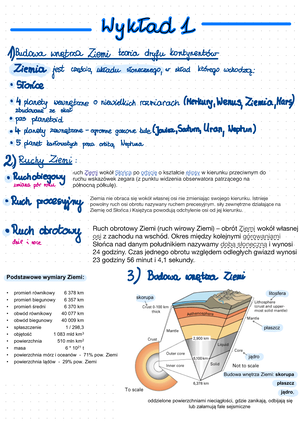 Wykład 1
1) Budowa wnętrza Ziemi teoria dryfu kontynentów
Ziemia jest częścią układu słonecznego, w skład którego wchodzą:
• Słońce
• 4 planety wewnętrzne o niewielkich rozmiarach (Merkury, Wenus, Ziemia, Mars)
zbudowane ze skał
• pas planetoid
• 4 planety zewnętrzne - ogromne gazowe kule (Jowisz, Saturn, Uran, Neptun)
• 5 planet karłowatych poza orbitą Neptuna
2) Ruchy Ziemi:
• Ruch obiegowy
zmiana pór roku
ruch Ziemi wokół Słońca po orbicie o kształcie elipsy w kierunku przeciwnym do
ruchu wskazówek zegara (z punktu widzenia obserwatora patrzącego na
północną półkulę).
• Ruch precesyjny
Ziemia nie obraca się wokół własnej osi nie zmieniając swojego kierunku. Istnieje
powolny ruch osi obrotu nazywany ruchem precesyjnym. siły zewnętrzne działające na
Ziemię od Słońca i Księżyca powodują odchylenie osi od jej kierunku.
• Ruch obrotowy
dzień i noc
Ruch obrotowy Ziemi (ruch wirowy Ziemi) – obrót Ziemi wokół własnej
osi z zachodu na wschód. Okres między kolejnymi górowaniami
Słońca nad danym południkiem nazywamy dobą słoneczną i wynosi
24 godziny. Czas jednego obrotu względem odległych gwiazd wynosi
23 godziny 56 minut i 4,1 sekundy.
Podstawowe wymiary Ziemi:
• promień równikowy 6 378 km
• promień biegunowy 6 357 km
• promień średni 6 370 km
• obwód równikowy 40 077 km
• obwód biegunowy 40 009 km
• spłaszczenie 1 / 298,3
• objętość 1 083 mld km³
• powierzchnia 510 mln km²
• masa
• powierzchnia mórz i oceanów - 71% pow. Ziemi
• powierzchnia lądów - 29% pow. Ziemi
3) Budowa wnętrza Ziemi
skorupa
Crust 0-100 km
thick
litosfera
Lithosphere
(crust and upper-
most solid mantle)
Asthenosphere
Mantle
płaszcz
Mantle
Crust
2,900 km
Liquid
Core
Outer core
Inner core
5,100 km
Solid
jądro
6,378 km
Not to scale
To scale
Budowa wnętrza Ziemi: skorupa
płaszcz
jądro.
oddzielone powierzchniami nieciągłości, gdzie zanikają, odbijają się
lub załamują fale sejsmiczne